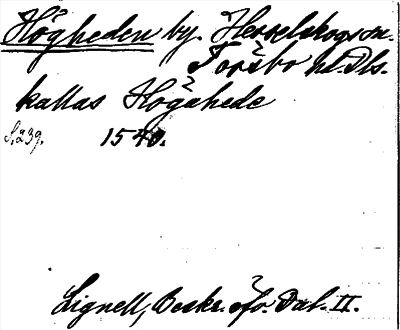 Högheden by. Herrelskogs sn.
Torsbo hd. Dls.
kallas Högahede
S. 239. 1540.
Lignell, Beskr. öfv. Dal. II.